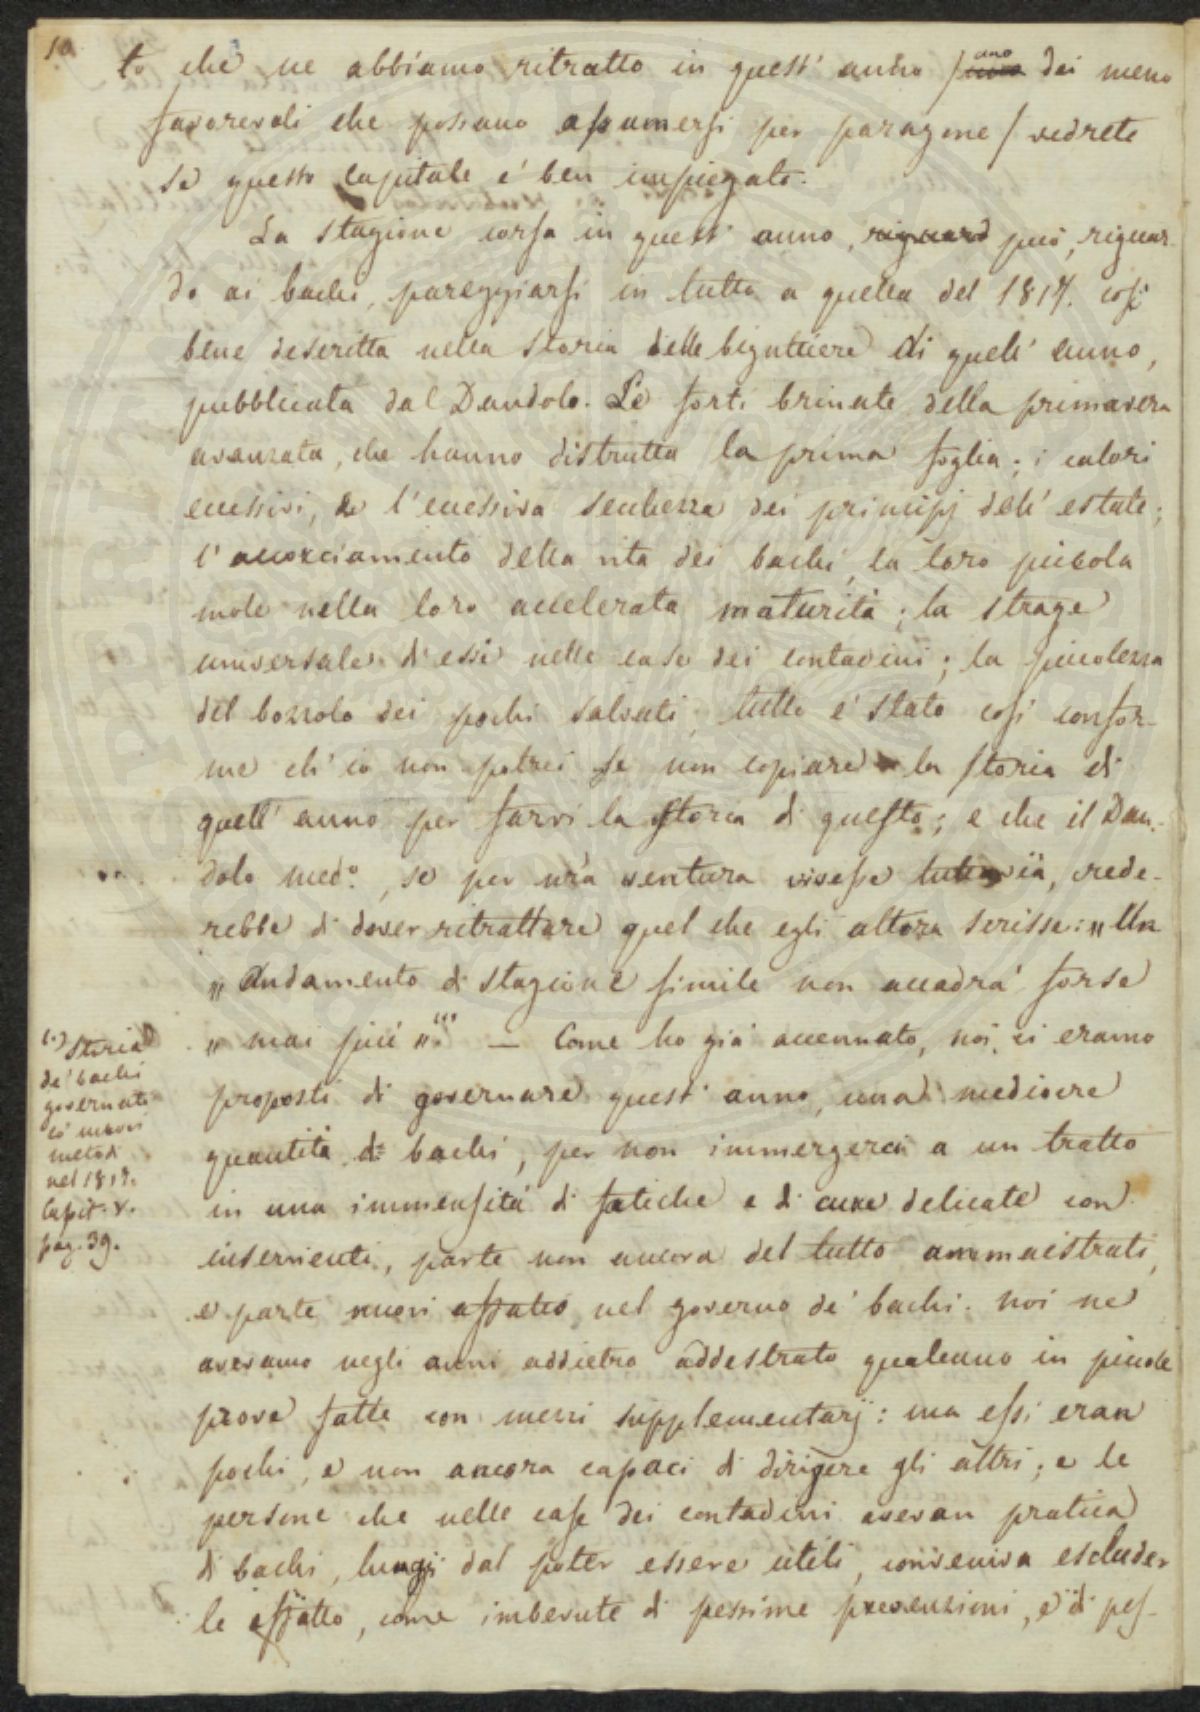 10.
to che ne abbiamo ritratto in quest' anno /uno uno dei meno
favorevoli che possano assumersi per paragone/ vedrete
se questo capitale è ben impiegato.
La stagione corsa in quest' anno, riguard può, riguar-
do ai bachi, pareggiarsi in tutto a quella del 1817. così
bene descritta nella storia delle bigattiere di quell' anno,
pubblicata dal Dandolo. Le forti brinate della primavera
avanzata, che hanno distrutta la prima foglia; i calori
eccessivi, e l'eccessiva secchezza dei principj dell' estate;
l'accorciamento della vita dei bachi, la loro piccola
mole nella loro accelerata maturità; la strage
universale di essi nelle case dei contadini; la piccolezza
del bozzolo dei pochi salvati, tutto è stato così confor-
me ch' io non potrei se non copiare la storia di
quell' anno per farvi la storia di questo; e che il Dan-
dolo med.o, se per n̄ra ventura vivesse tuttavia, crede-
rebbe di dover ritrattare quel che egli allora scrisse: „Un
„ andamento di stagione simile non accadrà forse
„ mai più „(1). — Come ho già accennato, noi ci eramo
proposti di governare quest' anno una mediocre
quantità di bachi, per non immergerci a un tratto
in una immensità di fatiche e di cure delicate con
inservienti, parte non ancora del tutto ammaestrati,
e parte nuovi affatto nel governo de' bachi. Noi ne
avevamo negli anni addietro addestrato qualcuno in piccole
prove fatte con mezzi supplementarj: ma essi eran
pochi, e non ancora capaci di dirigere gli altri; e le
persone che nelle case dei contadini avevan pratica
di bachi, lungi dal poter essere utili, conveniva escluder-
le affatto, come imbevute di pessime prevenzioni, e di pes-
(1) Storia
de' bachi
governati
co' nuovi
metodi
nel 1817.
Capit. V.
pag. 39.